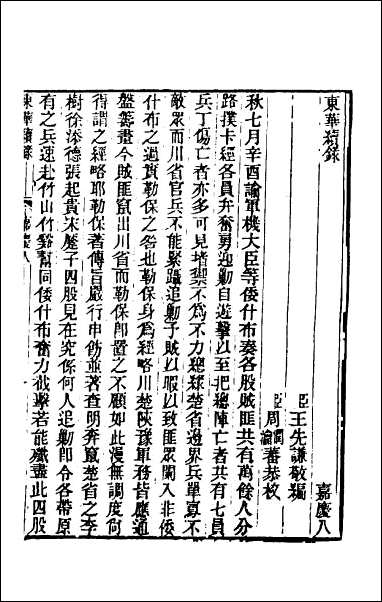 東華續錄
嘉慶八
臣王先謙敬編
臣周潤蕃周瀹蕃恭校
秋七月辛酉諭軍機大臣等倭什布奏各股賊匪共有萬餘人分
路撲卡經各員弁奮勇迎勦自遊擊以至把總陣亡者共有七員
兵丁傷亡者亦多可見堵禦不為不力總緣楚省邊界兵單寡不
敵眾而川省官兵不能緊躡追勦予賊以暇以致匪眾闌入非倭
什布之過實勒保之咎也勒保身為經略川楚陝豫軍務皆應通
盤籌畫今賊匪竄出川省而勒保即置之不顧如此漫無調度何
得謂之經略耶勒保著傳旨嚴行申飭並著查明奔竄楚省之李
樹徐添德張起貴宋麼子四股見在究係何人追勦即令各帶原
有之兵速赴竹山竹谿幫同倭什布奮力截擊若能殲盡此四股
東華續錄
嘉慶八